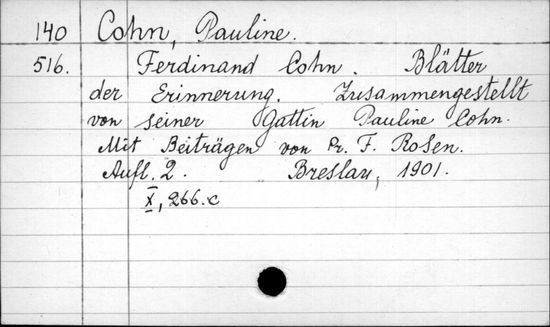 140 Cohn, Pauline.
516. Ferdinand Cohn. Blätter
der Erinnerung. Zusammengestellt
von seiner Gattin Pauline Cohn.
Mit Beiträgen von Pr. F. Rosen.
Aufl. 2. Breslau, 1901.
X, 266.c